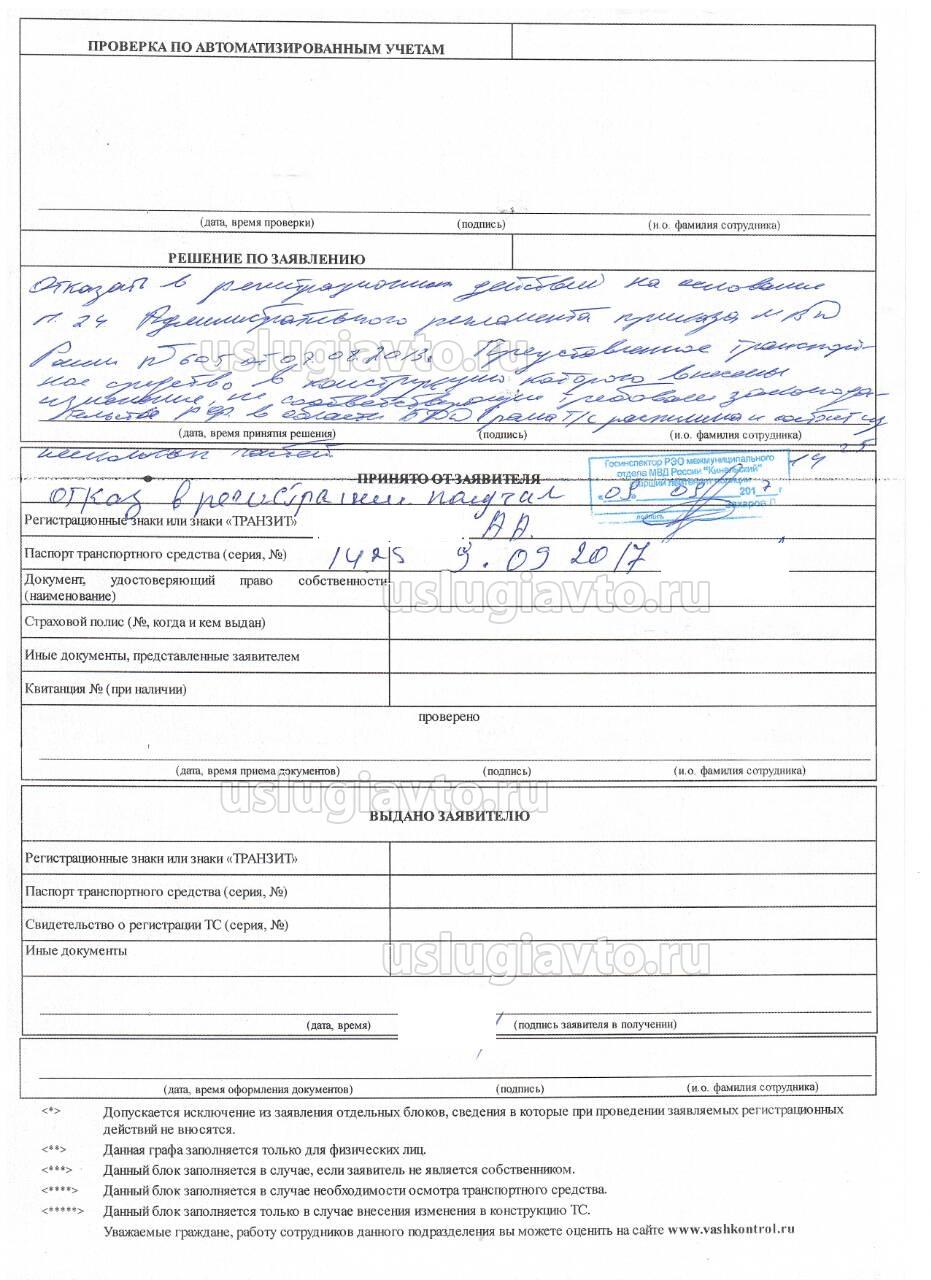 ПРОВЕРКА ПО АВТОМАТИЗИРОВАННЫМ УЧЕТАМ
(дата, время проверки) (подпись) (и.о. фамилия сотрудника)
РЕШЕНИЕ ПО ЗАЯВЛЕНИЮ
Отказать в регистрационных действий на основании
п. 24 Административного регламента приказа МВД
России №605 от 07.08.2013г. транспорт-
uslugiavto.ru
ное средство в конструкцию которого внесены
изменение, не соответствующии требован законода-
тельства РФ в области БДД рама Т/С распилина и состоит из
(дата, время принятия решения) (подпись) (и.о. фамилия сотрудника)
нескольких частей. 14 25
ПРИНЯТО ОТ ЗАЯВИТЕЛЯ
Госинспектор РЭО межмуниципального
отдела МВД России "Кинельский"
старший лейтенант полиции
«09» 09 2017 г
подпись Захаров
отказ в регистрации получил
Регистрационные знаки или знаки «ТРАНЗИТ» АА.
Паспорт транспортного средства (серия, №) 1425 9.09 2017
Документ, удостоверяющий право собственности
(наименование)
uslugiavto.ru
Страховой полис (№, когда и кем выдан)
Иные документы, представленные заявителем
Квитанция № (при наличии)
проверено
(дата, время приема документов) (подпись) (и.о. фамилия сотрудника)
uslugiavto.ru
ВЫДАНО ЗАЯВИТЕЛЮ
Регистрационные знаки или знаки «ТРАНЗИТ»
Паспорт транспортного средства (серия, №)
Свидетельство о регистрации ТС (серия, №)
Иные документы
uslugiavto.ru
(дата, время) (подпись заявителя в получении)
(дата, время оформления документов) (подпись) (и.о. фамилия сотрудника)
<*> Допускается исключение из заявления отдельных блоков, сведения в которые при проведении заявляемых регистрационных
действий не вносятся.
<**> Данная графа заполняется только для физических лиц.
<***> Данный блок заполняется в случае, если заявитель не является собственником.
<****> Данный блок заполняется в случае необходимости осмотра транспортного средства.
<*****> Данный блок заполняется только в случае внесения изменения в конструкцию ТС.
Уважаемые граждане, работу сотрудников данного подразделения вы можете оценить на сайте www.vashkontrol.ru